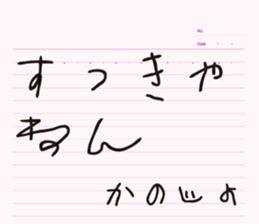 No.
Date ・ ・
すっきゃ
ねん
かのじょ